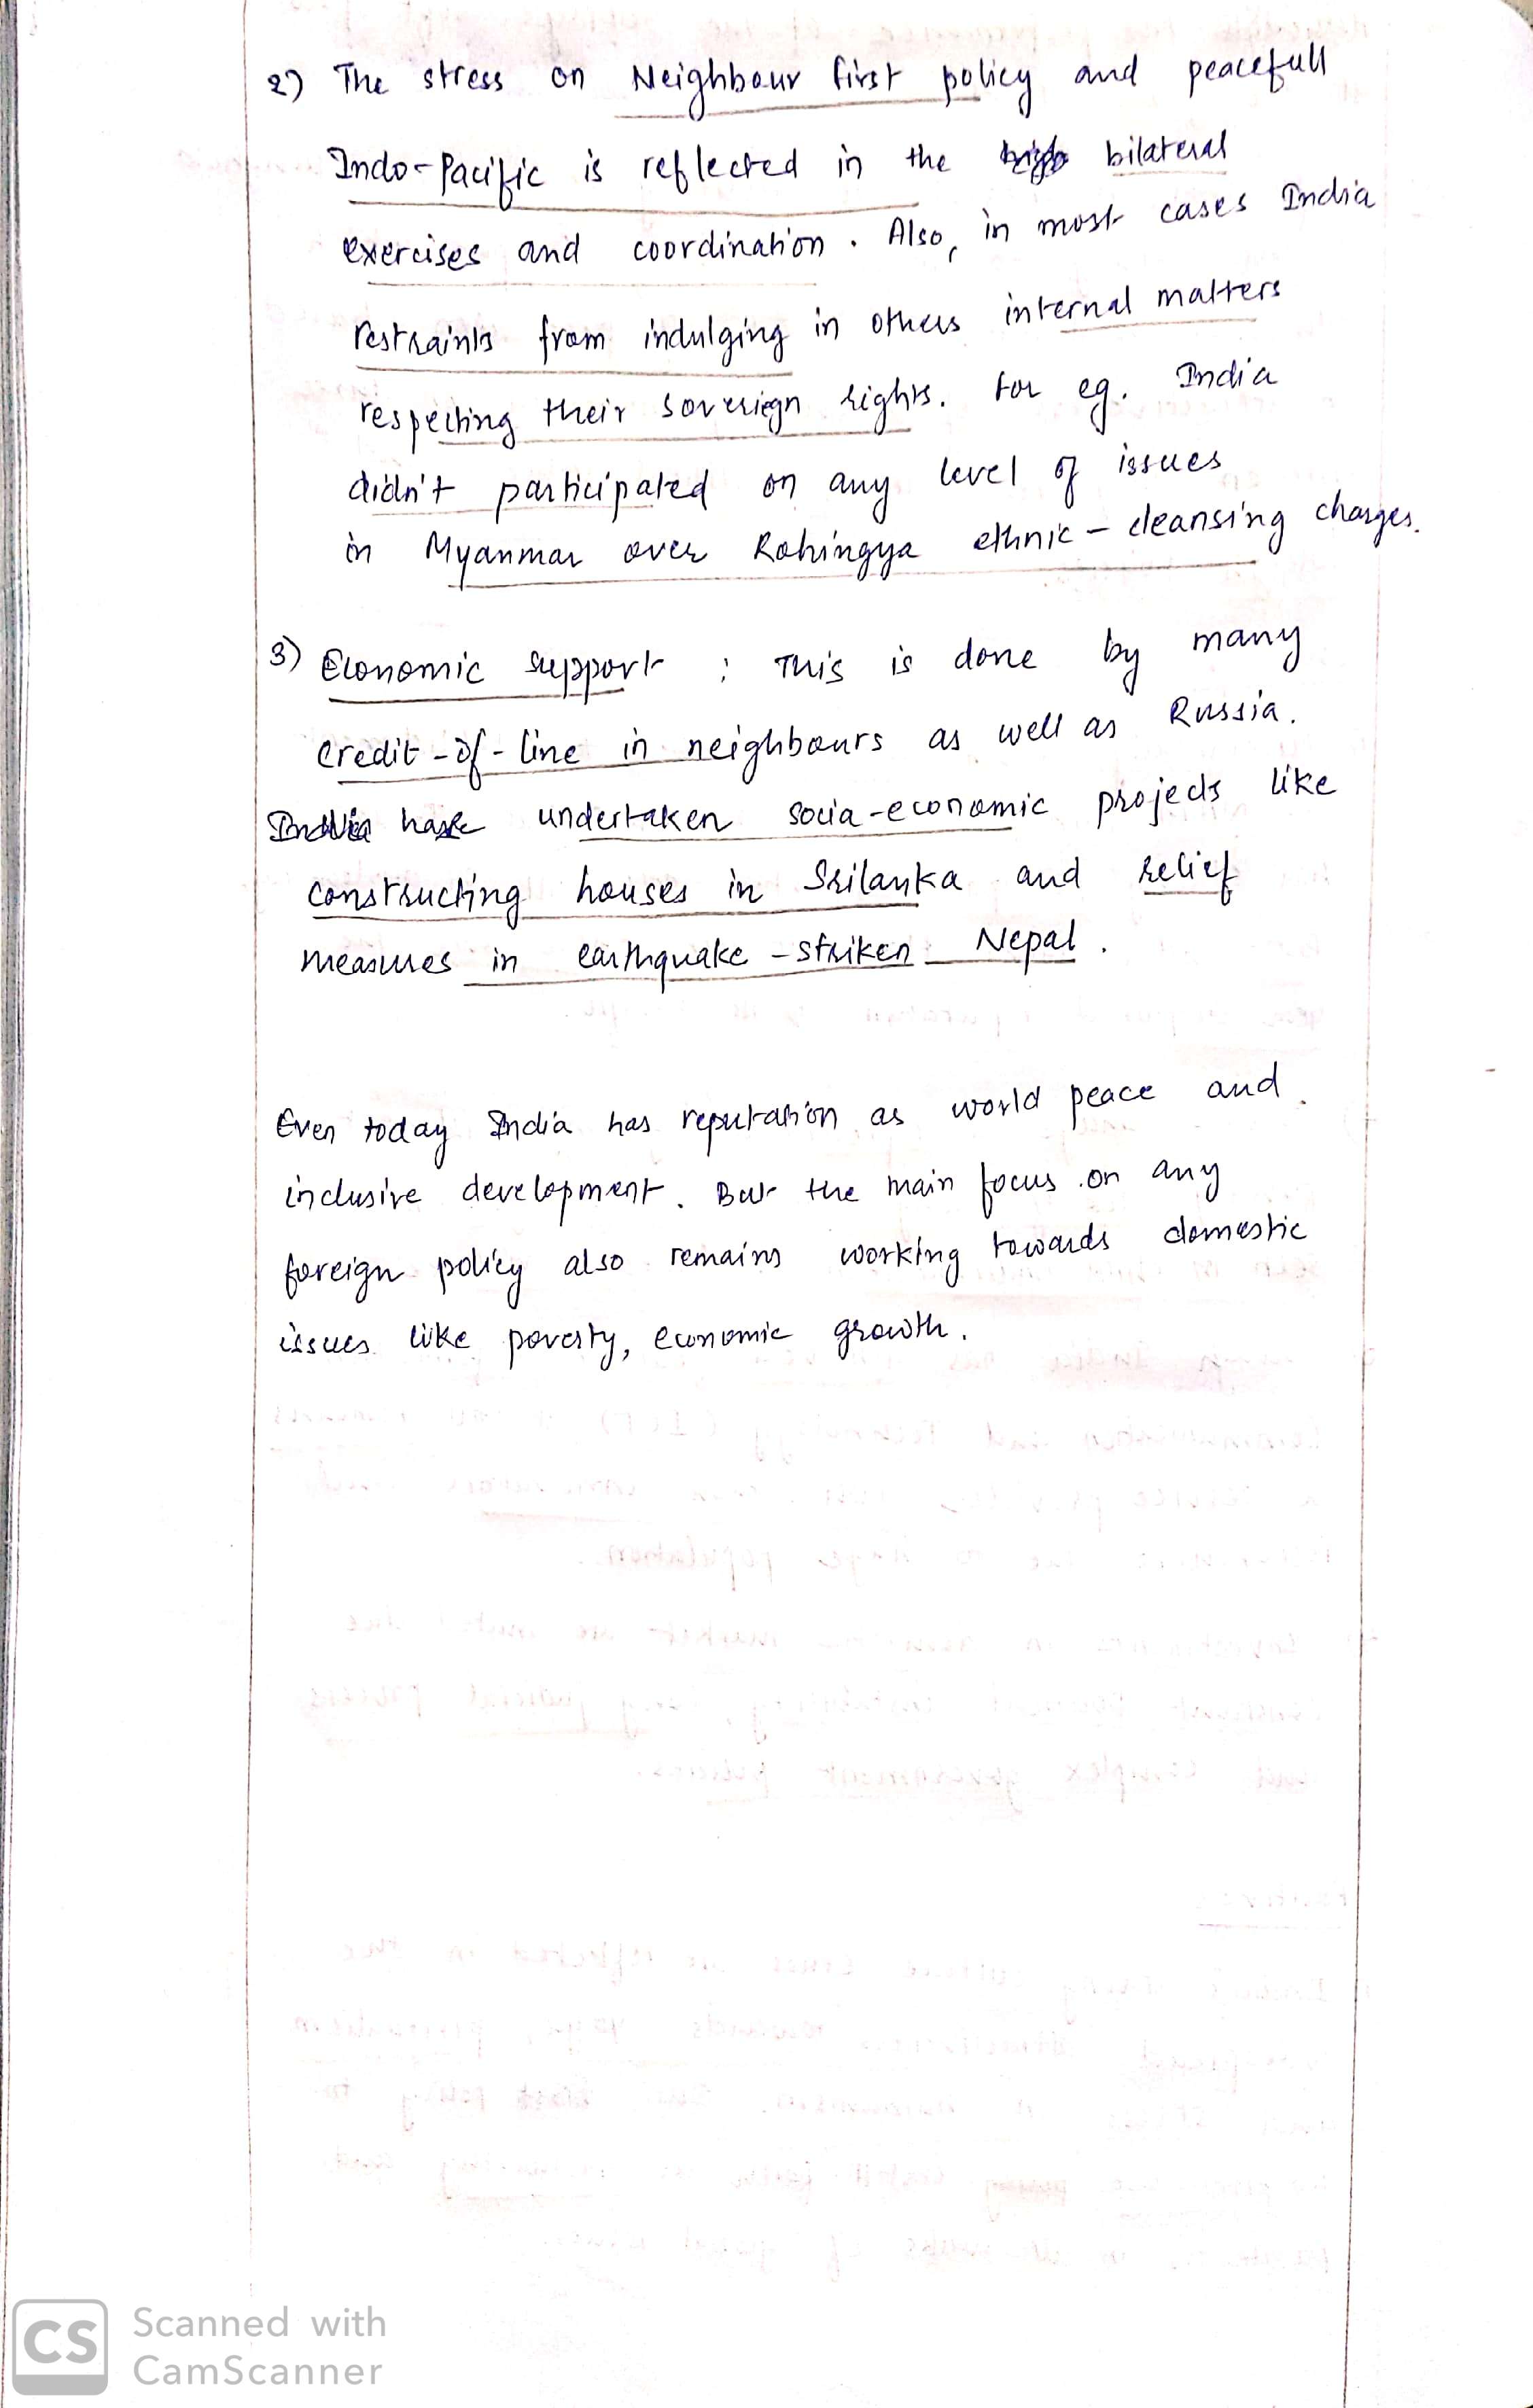 2) The stress on Neighbour first policy and peacefull
Indo-Pacific is reflected in the bilateral
exercises and coordination. Also, in most cases India
restraints from indulging in others internal matters
respecting their soveriegn rights. For eg. India
didn't participated on any level of issues
in Myanmar over Rohingya ethnic-cleansing charges.
3) Economic support : This is done by many
credit-of-line in neighbours as well as Russia.
India have undertaken socia-economic projects like
constructing houses in Srilanka and relief
measures in earthquake-striken Nepal.
Even today India has reputation as world peace and
inclusive development. But the main focus on any
foreign policy also remains working towards domestic
issues like poverty, economic growth.
CS Scanned with
CamScanner